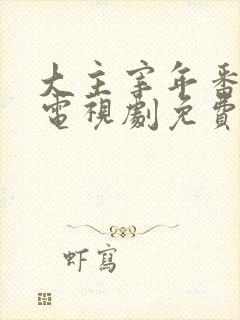 大主宰年番
電視劇免費
虾寫